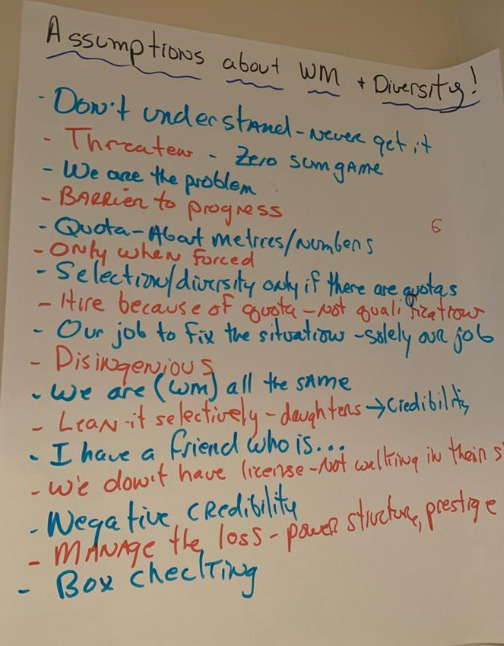 Assumptions about WM + Diversity!
· Don't understand - never get it
- Threaten - Zero sum game
- We are the problem
- BARRIER to progress
6
- Quota - About metrics/numbers
- Only when forced
- Selection/diversity only if there are quotas
- Hire because of quota - not qualification
- Our job to fix the situation - solely our job
- Disingenious
- We are (WM) all the same
- Lean-it selectively - daughters → Credibility
- I have a friend who is...
- We don't have license - Not walking in their s
- Negative credibility
- MANAGE the loss - power structure, prestige
- Box checking